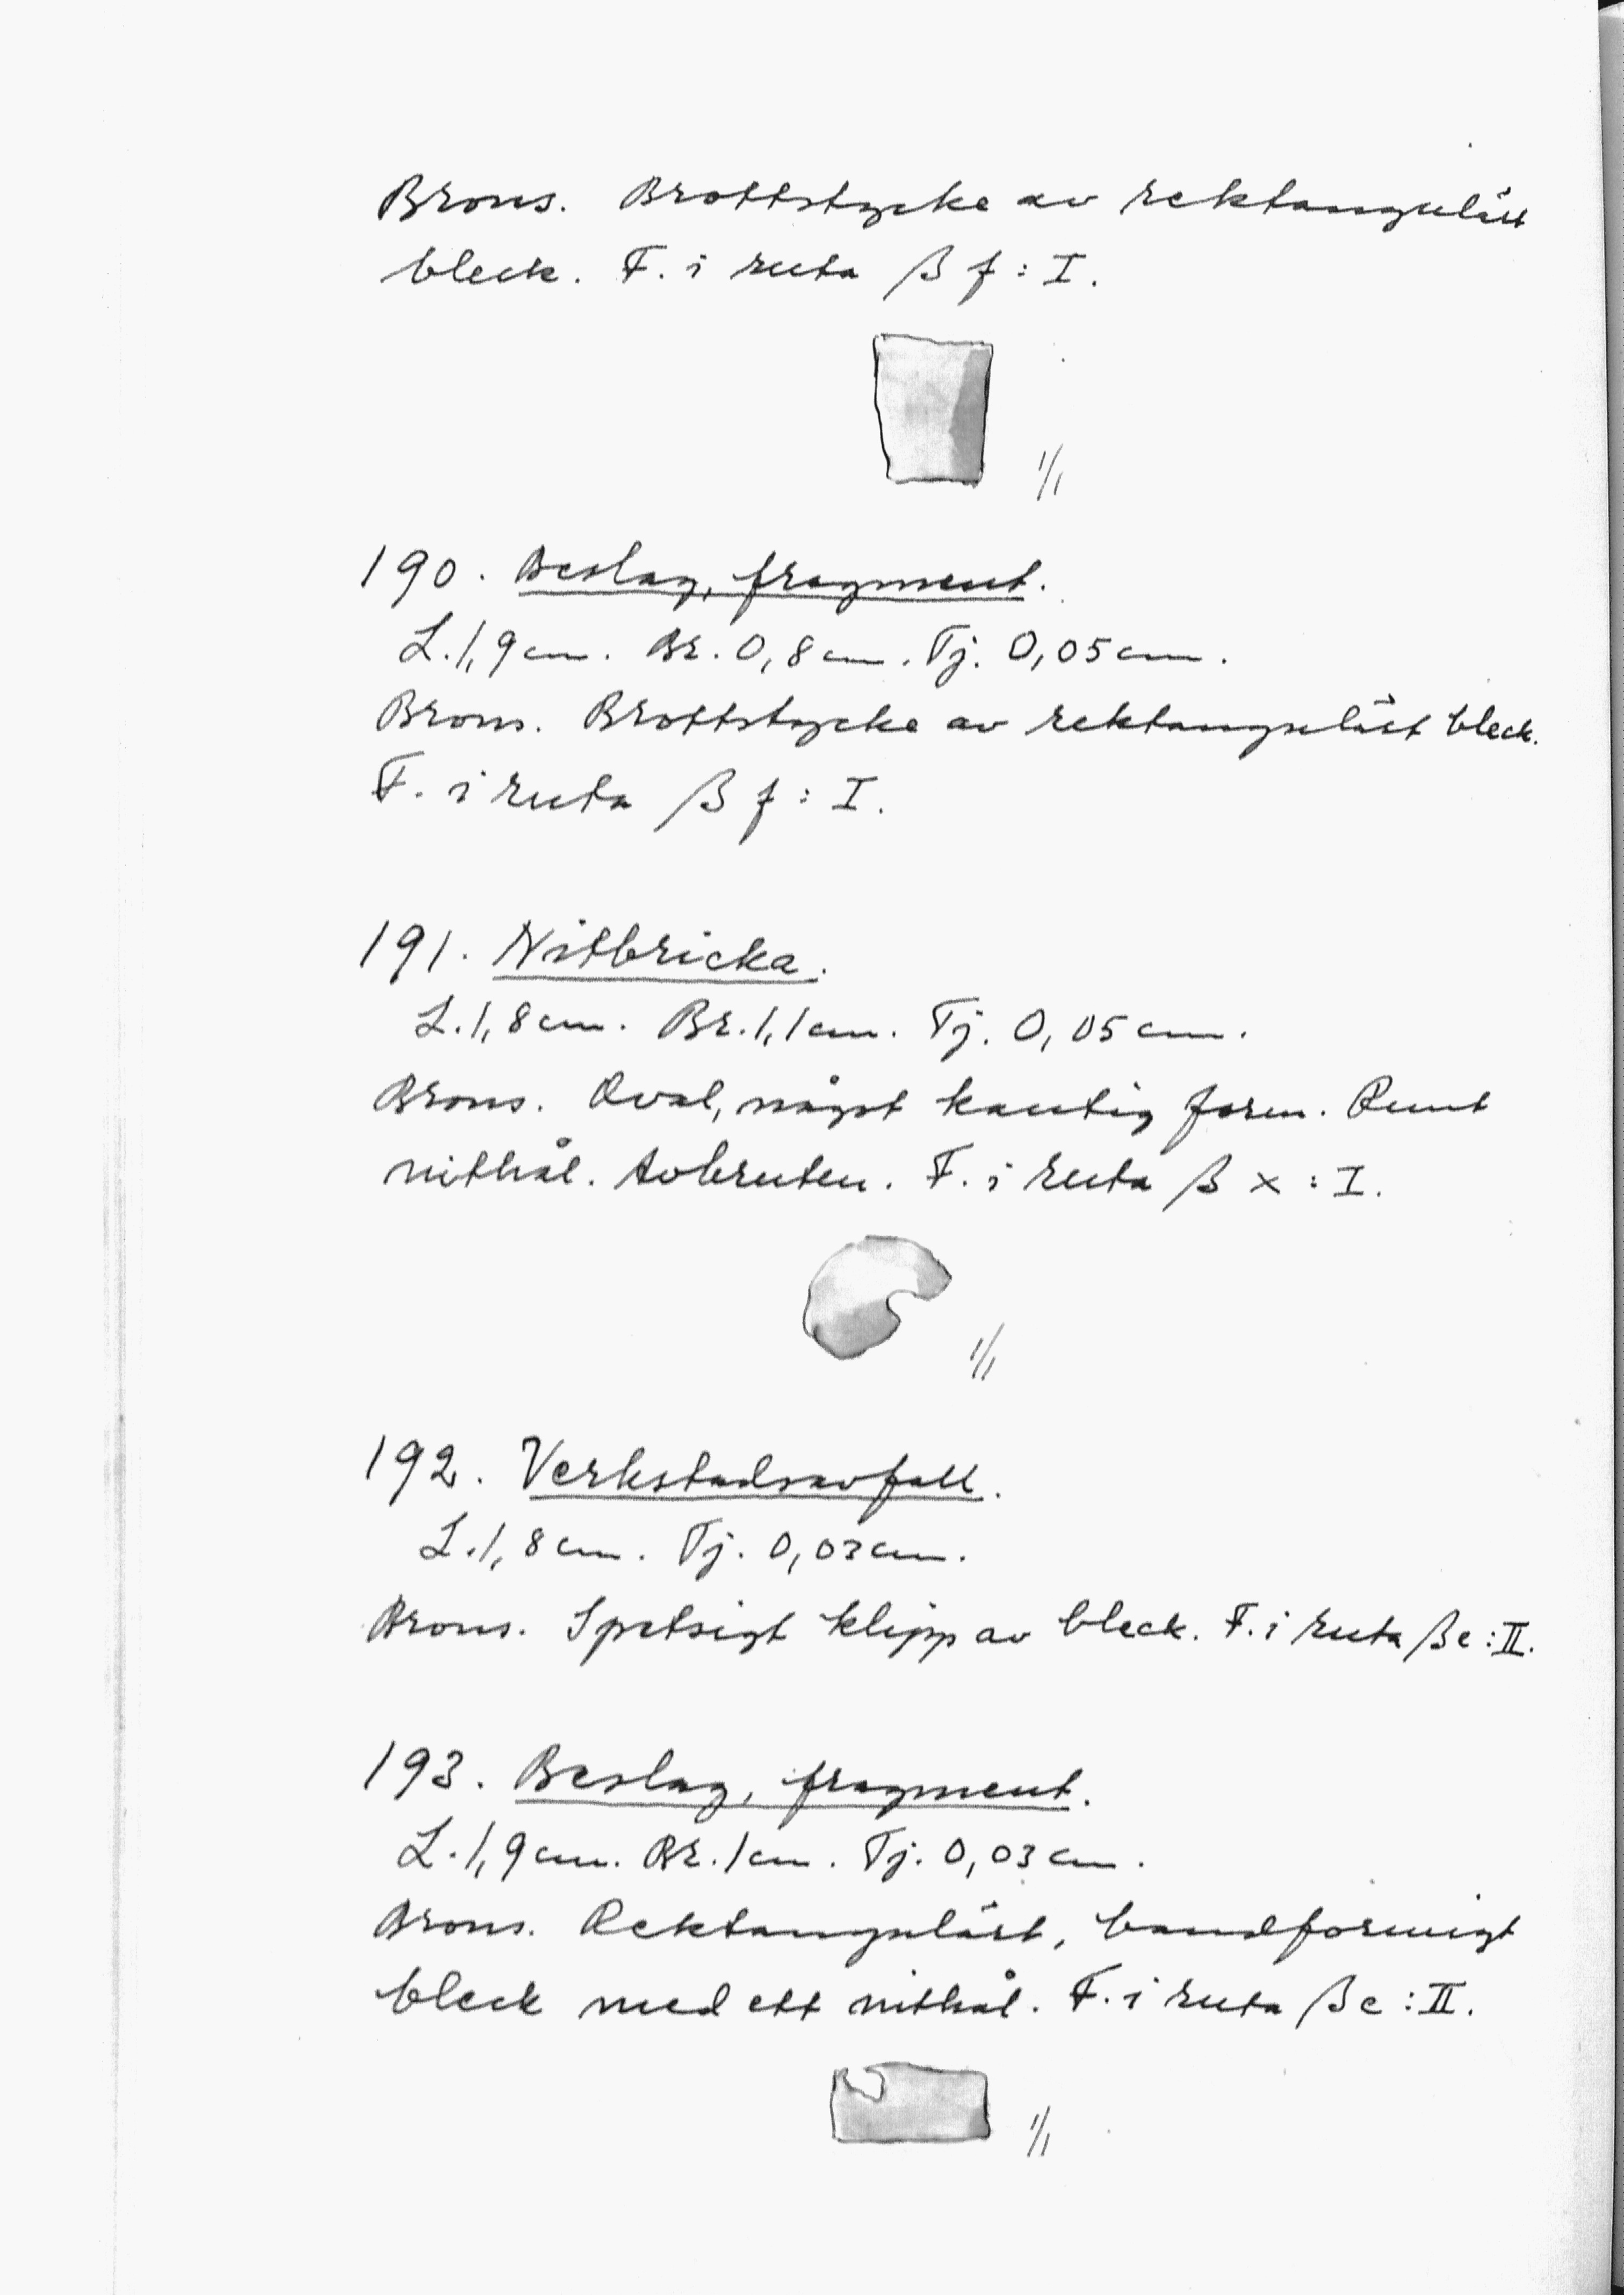 Brons. Brottstycke av rektangulärt
bleck. F. i ruta β f : I.
1/1
190. Beslag, fragment.
L. 1,9 cm. Br. 0,8 cm. Tj. 0,05 cm.
Brons. Brottstycke av rektangulärt bleck.
F. i ruta β f : I.
191. Nitbricka.
L. 1,8 cm. Br. 1,1 cm. Tj. 0,05 cm.
Brons. Oval, något kantig form. Runt
nithål. Avbruten. F. i ruta β x : I.
1/1
192. Verkstadsavfall.
L. 1,8 cm. Tj. 0,03 cm.
Brons. Spetsigt klipp av bleck. F. i ruta β e : II.
193. Beslag, fragment.
L. 1,9 cm. Br. 1 cm. Tj. 0,03 cm.
Brons. Rektangulärt, bandformigt
bleck med ett nithål. F. i ruta β e : II.
1/1